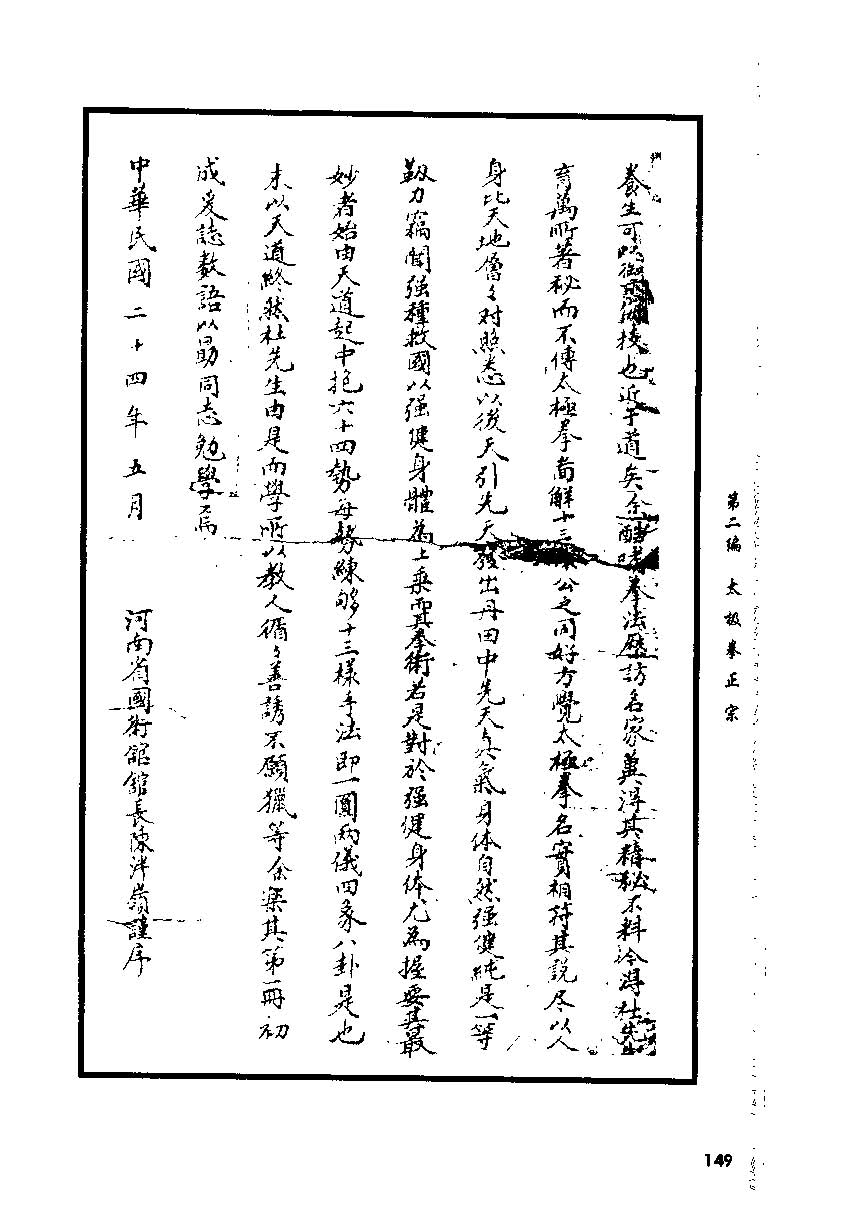 養生可以禦技也近乎道矣余酷嗜拳法歷訪名家冀得其精秘不料今得杜先生
育萬所著秘而不傳太極拳啚解十三公之同好方覺太極拳名實相符其說尽以人
身比天地層々对照悉以後天引先天發出丹田中先天真氣身体自然强健純是一等
韌力竊聞强種救國以强健身體為上乘而其拳術若是對於强健身体尤為握要其最
妙者始由天道起中抱六十四勢每勢練够十三樣手法即一圓兩儀四象八卦是也
末以天道終然杜先生由是而學所以教人循々善誘不願獵等余樂其第一冊初
成爰誌數語以勗同志勉學焉
中華民國二十四年五月 河南省國術館館長陳泮嶺謹序
第二编 太极拳正宗
149